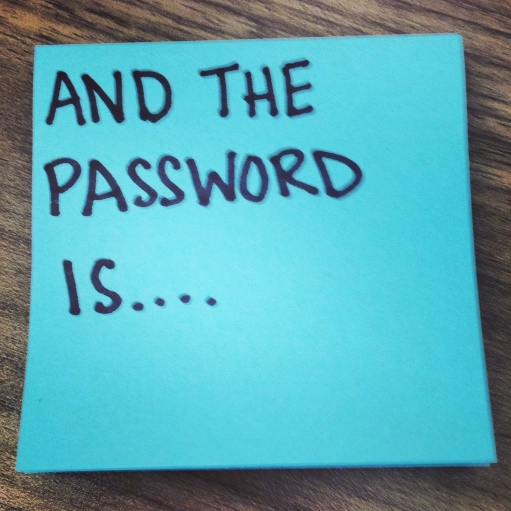 AND THE
PASSWORD
IS....